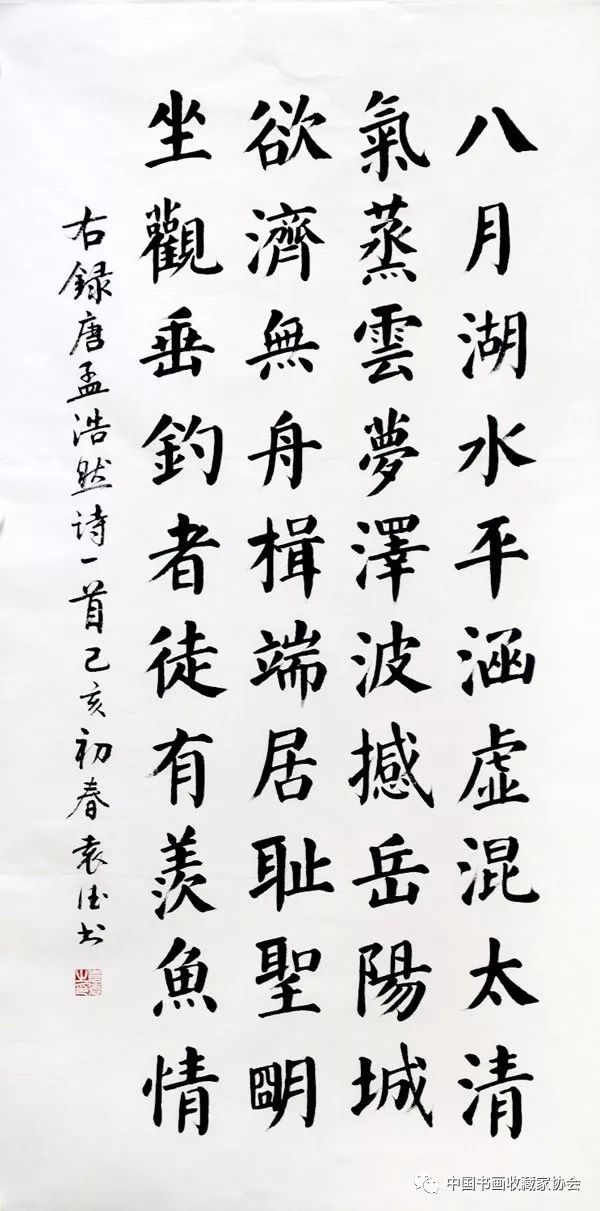 八月湖水平涵虚混太清
氣蒸雲夢澤波撼岳陽城
欲濟無舟楫端居耻聖明
坐觀垂釣者徒有羨魚情
右録唐孟浩然诗一首己亥初春袁佳书
中国书画收藏家协会